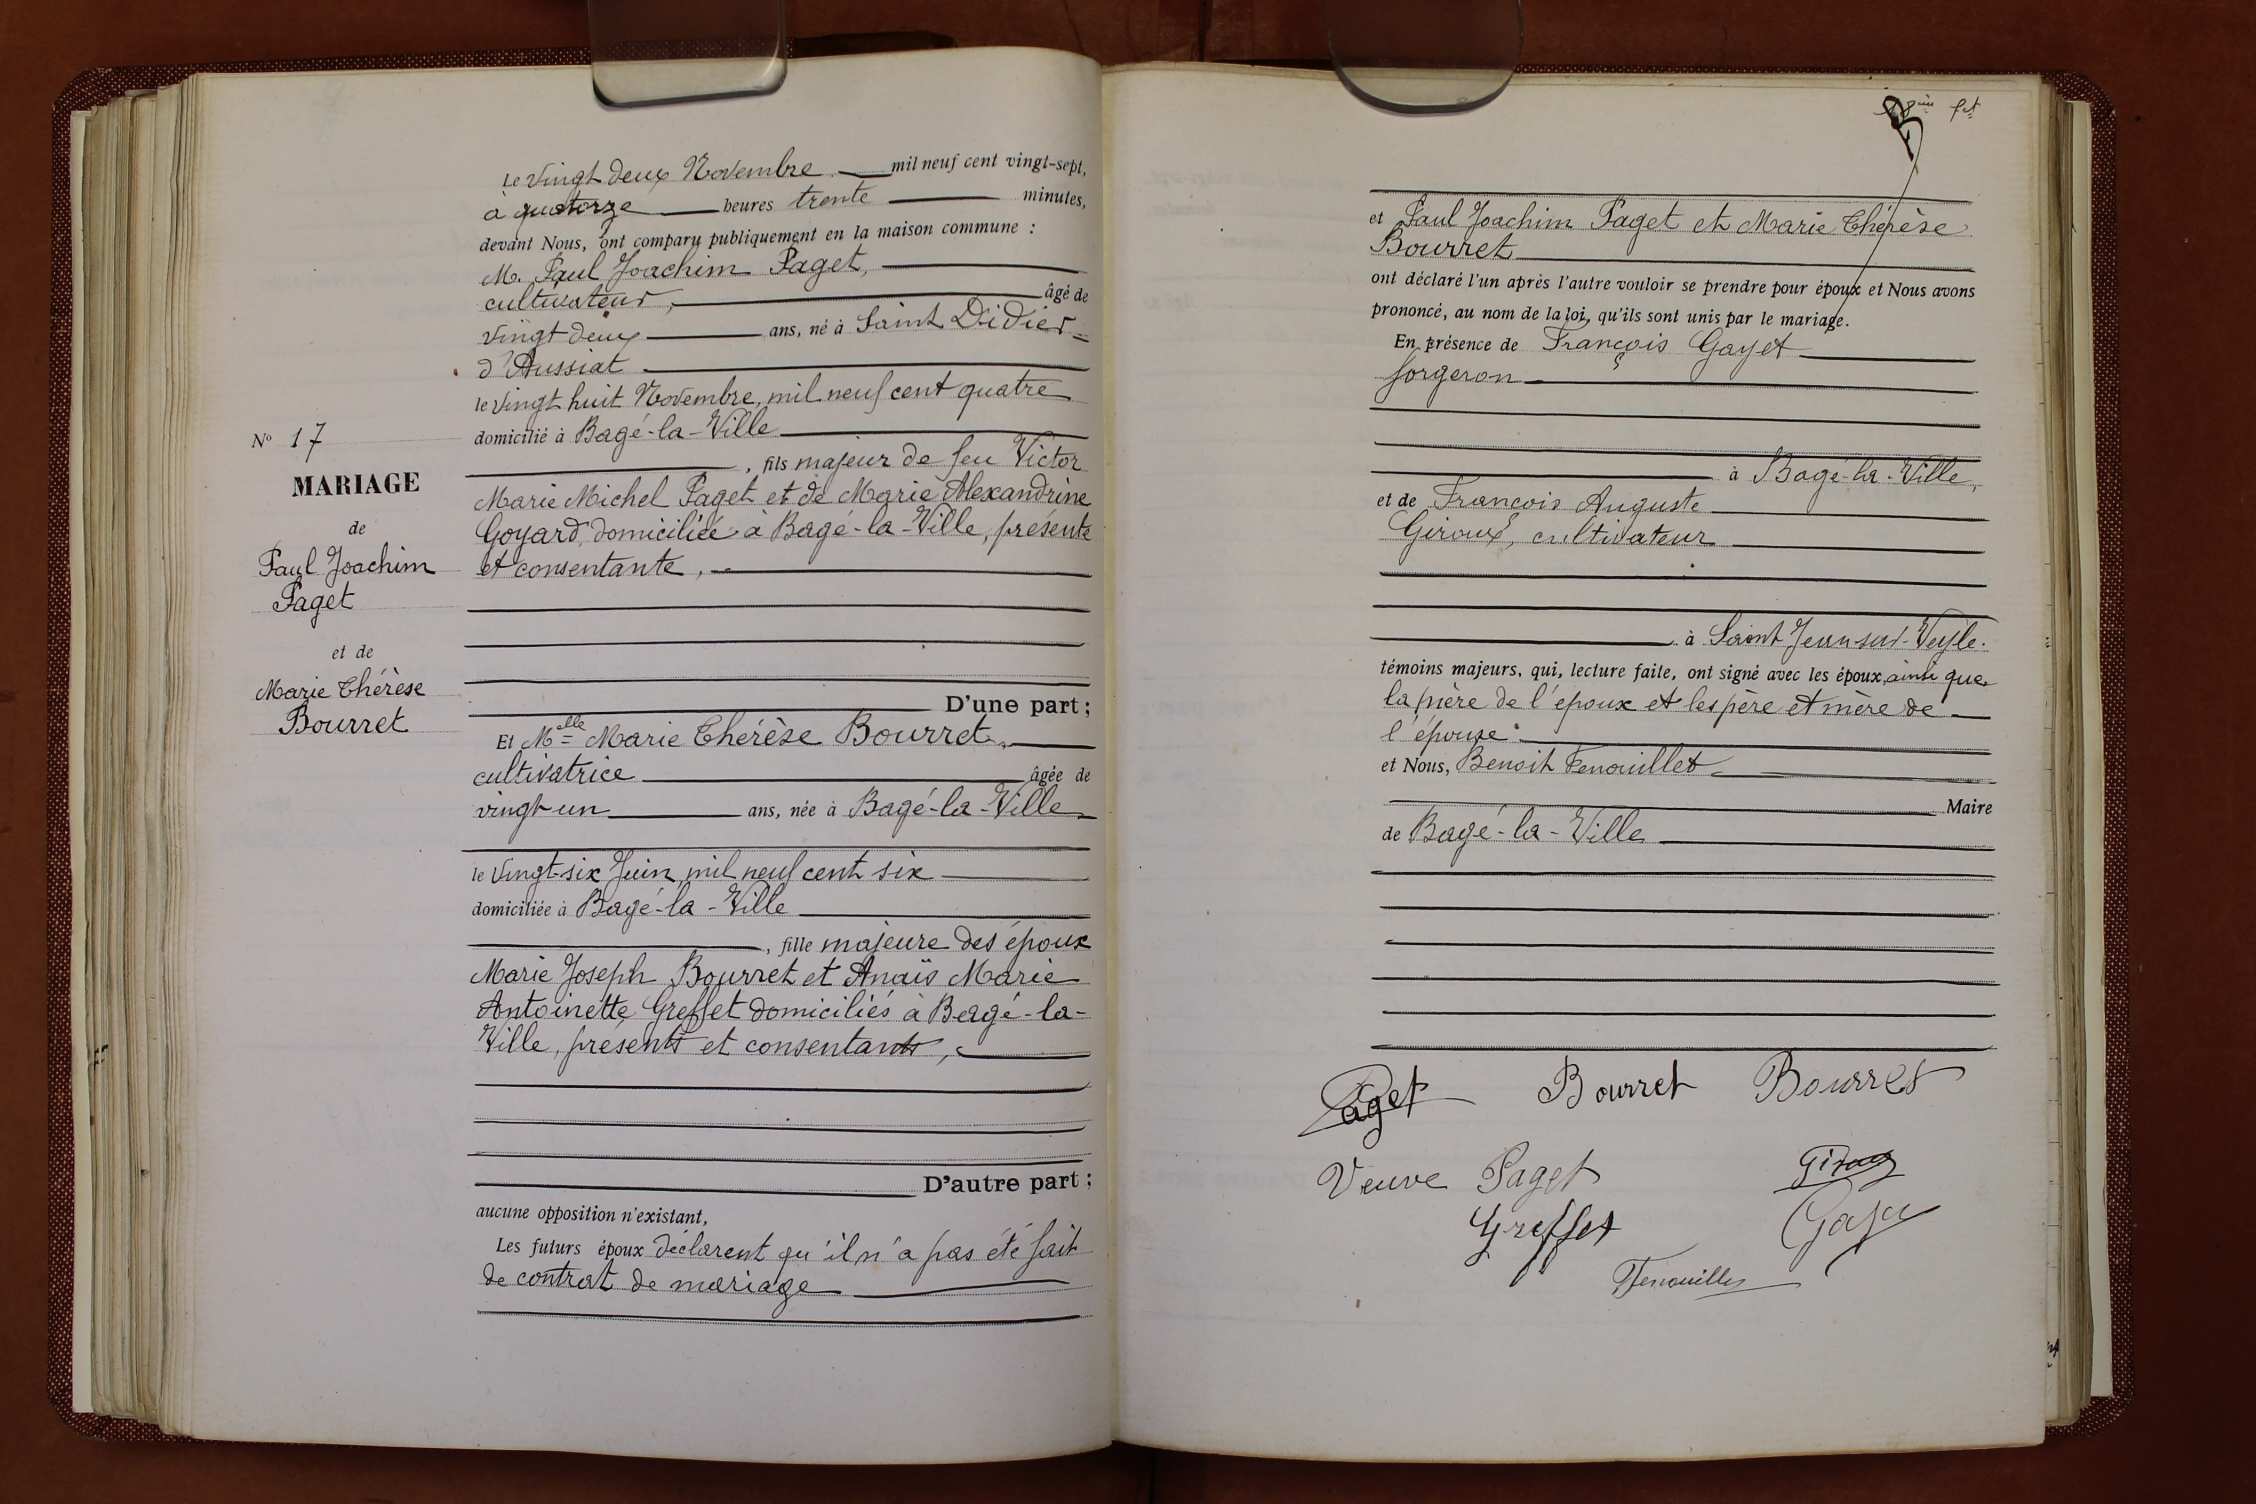 Le vingt deux Novembre mil neuf cent vingt-sept,
à quatorze heures trente minutes,
devant Nous, ont comparu publiquement en la maison commune :
M. Paul Joachim Paget,
cultivateur, âgé de
vingt deux ans, né à Saint Didier
d'Aussiat
le vingt huit Novembre, mil neuf cent quatre
domicilié à Bagé-la-Ville
, fils majeur de feu Victor
Marie Michel Paget et de Marie Alexandrine
Goyard, domiciliée à Bagé-la-Ville, présente
et consentante,
D'une part ;
Et Melle Marie Thérèse Bourret,
cultivatrice âgée de
vingt-un ans, née à Bagé-la-Ville
le vingt-six Juin mil neuf cent six
domiciliée à Bagé-la-Ville
, fille majeure des époux
Marie Joseph Bourret et Anaïs Marie
Antoinette Greffet domiciliés à Bagé-la-
Ville, présents et consentants,
D'autre part ;
aucune opposition n'existant,
Les futurs époux déclarent qu'il n'a pas été fait
de contrat de mariage
No 17
MARIAGE
de
Paul Joachim
Paget
et de
Marie Thérèse
Bourret
et Paul Joachim Paget et Marie Thérèse
Bourret
ont déclaré l'un après l'autre vouloir se prendre pour époux et Nous avons
prononcé, au nom de la loi, qu'ils sont unis par le mariage.
En présence de François Gayet
forgeron
à Bagé-la-Ville,
et de François Auguste
Giroux, cultivateur
à Saint Jean sur Veyle.
témoins majeurs, qui, lecture faite, ont signé avec les époux, ainsi que
la mère de l'époux et les père et mère de
l'épouse.
et Nous, Benoit Fenouillet
Maire
de Bagé-la-Ville
Paget Bourret Bourret
Veuve Paget Giroux
Greffet Gayet
Fenouillet